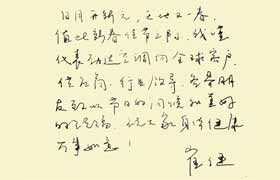 日月开新元，天地又一春。
值此新春佳节之际，我谨
代表志达空调向全球客户、
供应商、行业领导、各界朋
友致以节日的问候和美好
的祝福。祝大家身体健康
万事如意！
崔健